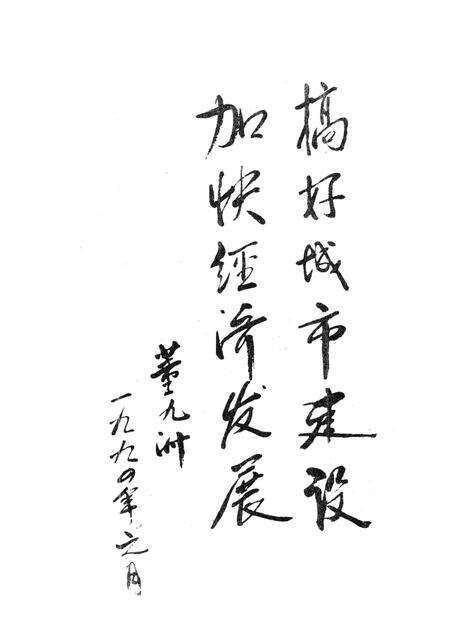 搞好城市建设
加快经济发展
董九洲
一九九〇年元月